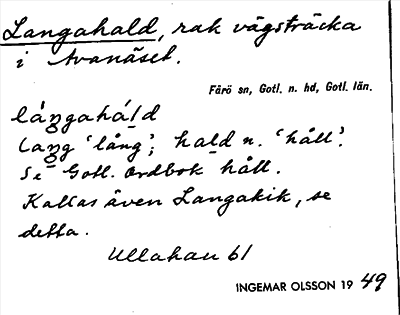 Langahald, rak vägsträcka
i Avanäset.
Fårö sn, Gotl. n. hd, Gotl. län.
láŋgahál̄d
laŋg 'lång'; hald n. 'håll'.
Se Gotl. ordbok håll.
Kallas även Langakik, se
detta.
Ullahau 61
INGEMAR OLSSON 1949